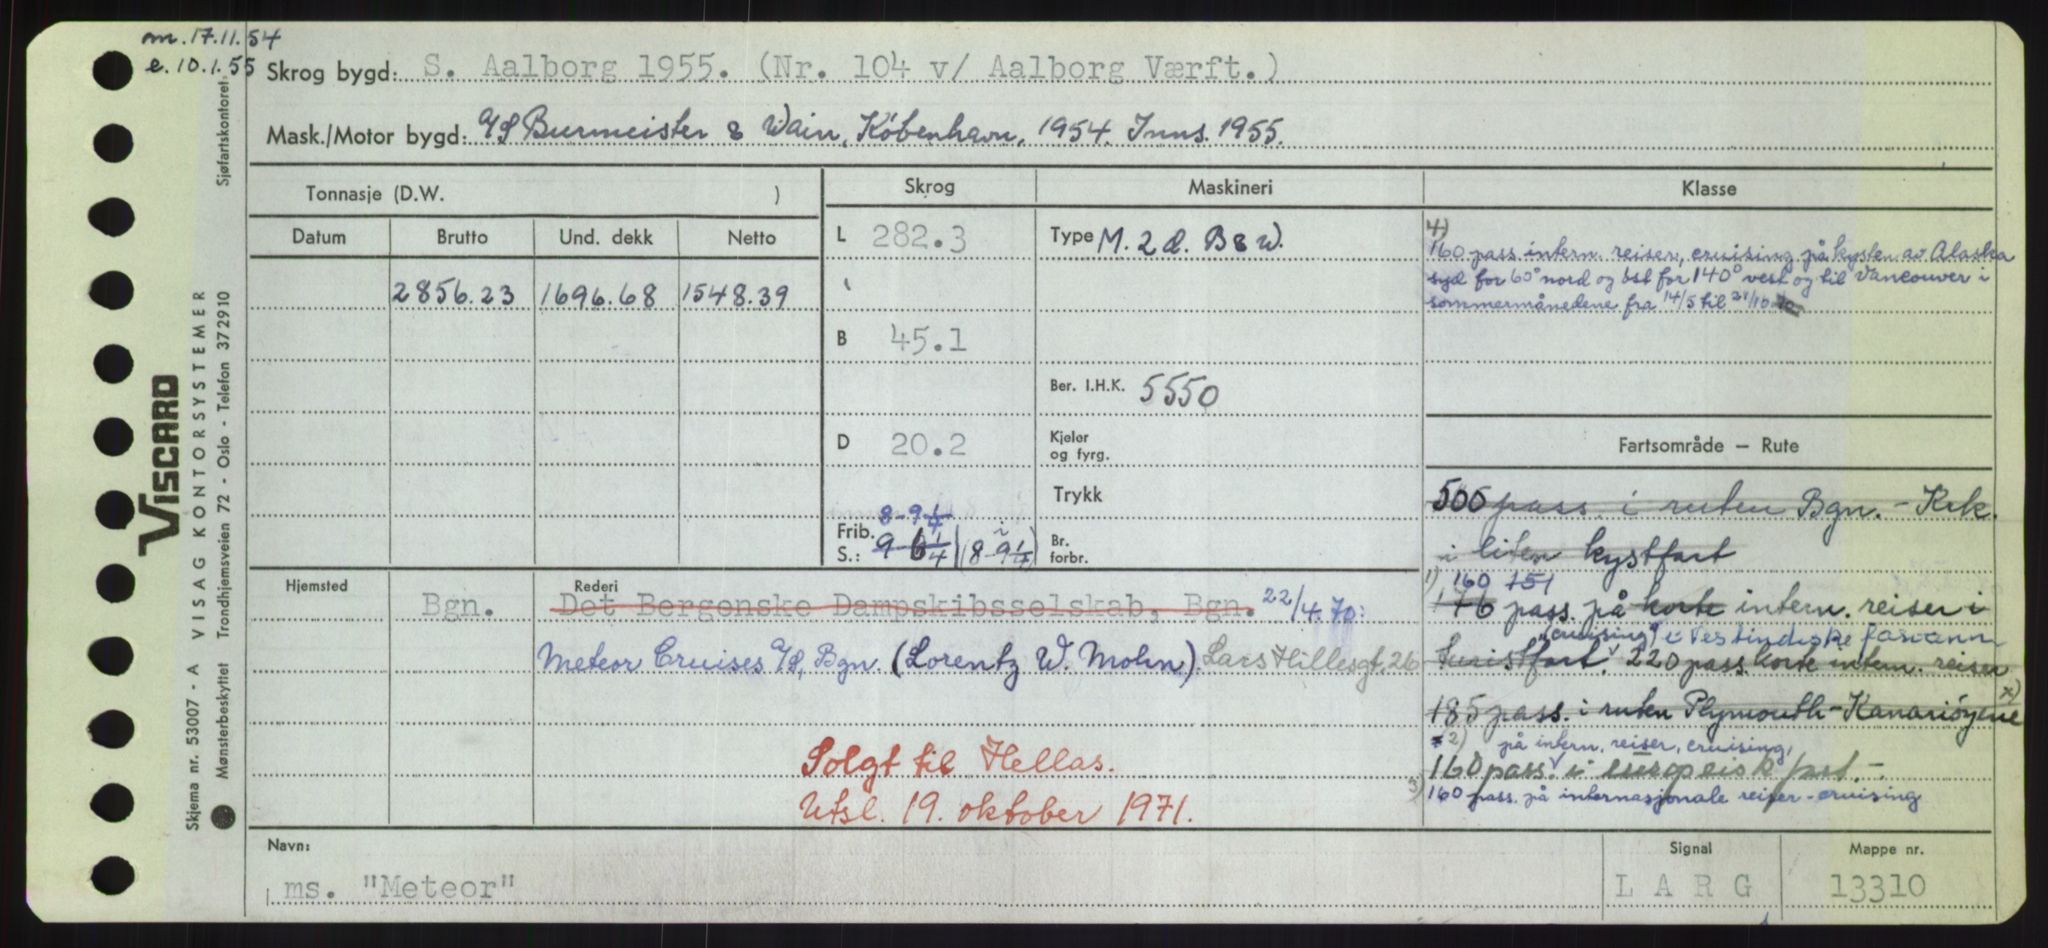 m. 17.11.54
e. 10.1.55
Skrog bygd: S. Aalborg 1955. (Nr. 104 v/ Aalborg Værft.)
Mask./Motor bygd: A/S Burmeister & Wain, København, 1954. Inns. 1955.
Tonnasje (D.W. )
Skrog
Maskineri
Klasse
Datum
Brutto
Und. dekk
Netto
2856.23
1696.68
1548.39
L 282.3
B 45.1
D 20.2
8-9¼
Frib. S.: 9-6¼ (8-9¼)
Type M. 2 d. B & W.
Ber. I.H.K. 5550
Kjeler og fyrg.
Trykk
Br. forbr.
4)
160 pass intern. reiser, cruising på kysten av Alaska
syd for 60° nord og øst for 140° vest og til Vancouver i
sommermånedene fra 14/5 til 21/10
Fartsområde – Rute
500 pass i ruten Bgn. - Krk.
i liten kystfart
1) 160 151
176 pass. på korte intern. reiser i
"cruising" i Vestindiske farvann
Turistfart. 220 pass. korte intern. reiser
x)
185 pass. i ruten Plymouth - Kanariøyene
2) på intern. reiser, cruising,
160 pass. i europeisk fart. -
3) 160 pass. på internasjonale reiser - cruising
Hjemsted
Bgn.
Rederi
Det Bergenske Dampskibsselskab, Bgn. 22/4.70:
Meteor Cruises A/S, Bgn. (Lorentz W. Mohn). Lars Hillesgt. 26
Solgt til Hellas.
Utsl. 19. oktober 1971.
Navn:
ms. "Meteor"
Signal
LARG
Mappe nr.
13310
VISCARD
Skjema nr. 53007 - A VISAG KONTORSYSTEMER
Mønsterbeskyttet Trondhjemsveien 72 - Oslo - Telefon 372910
Sjøfartskontoret